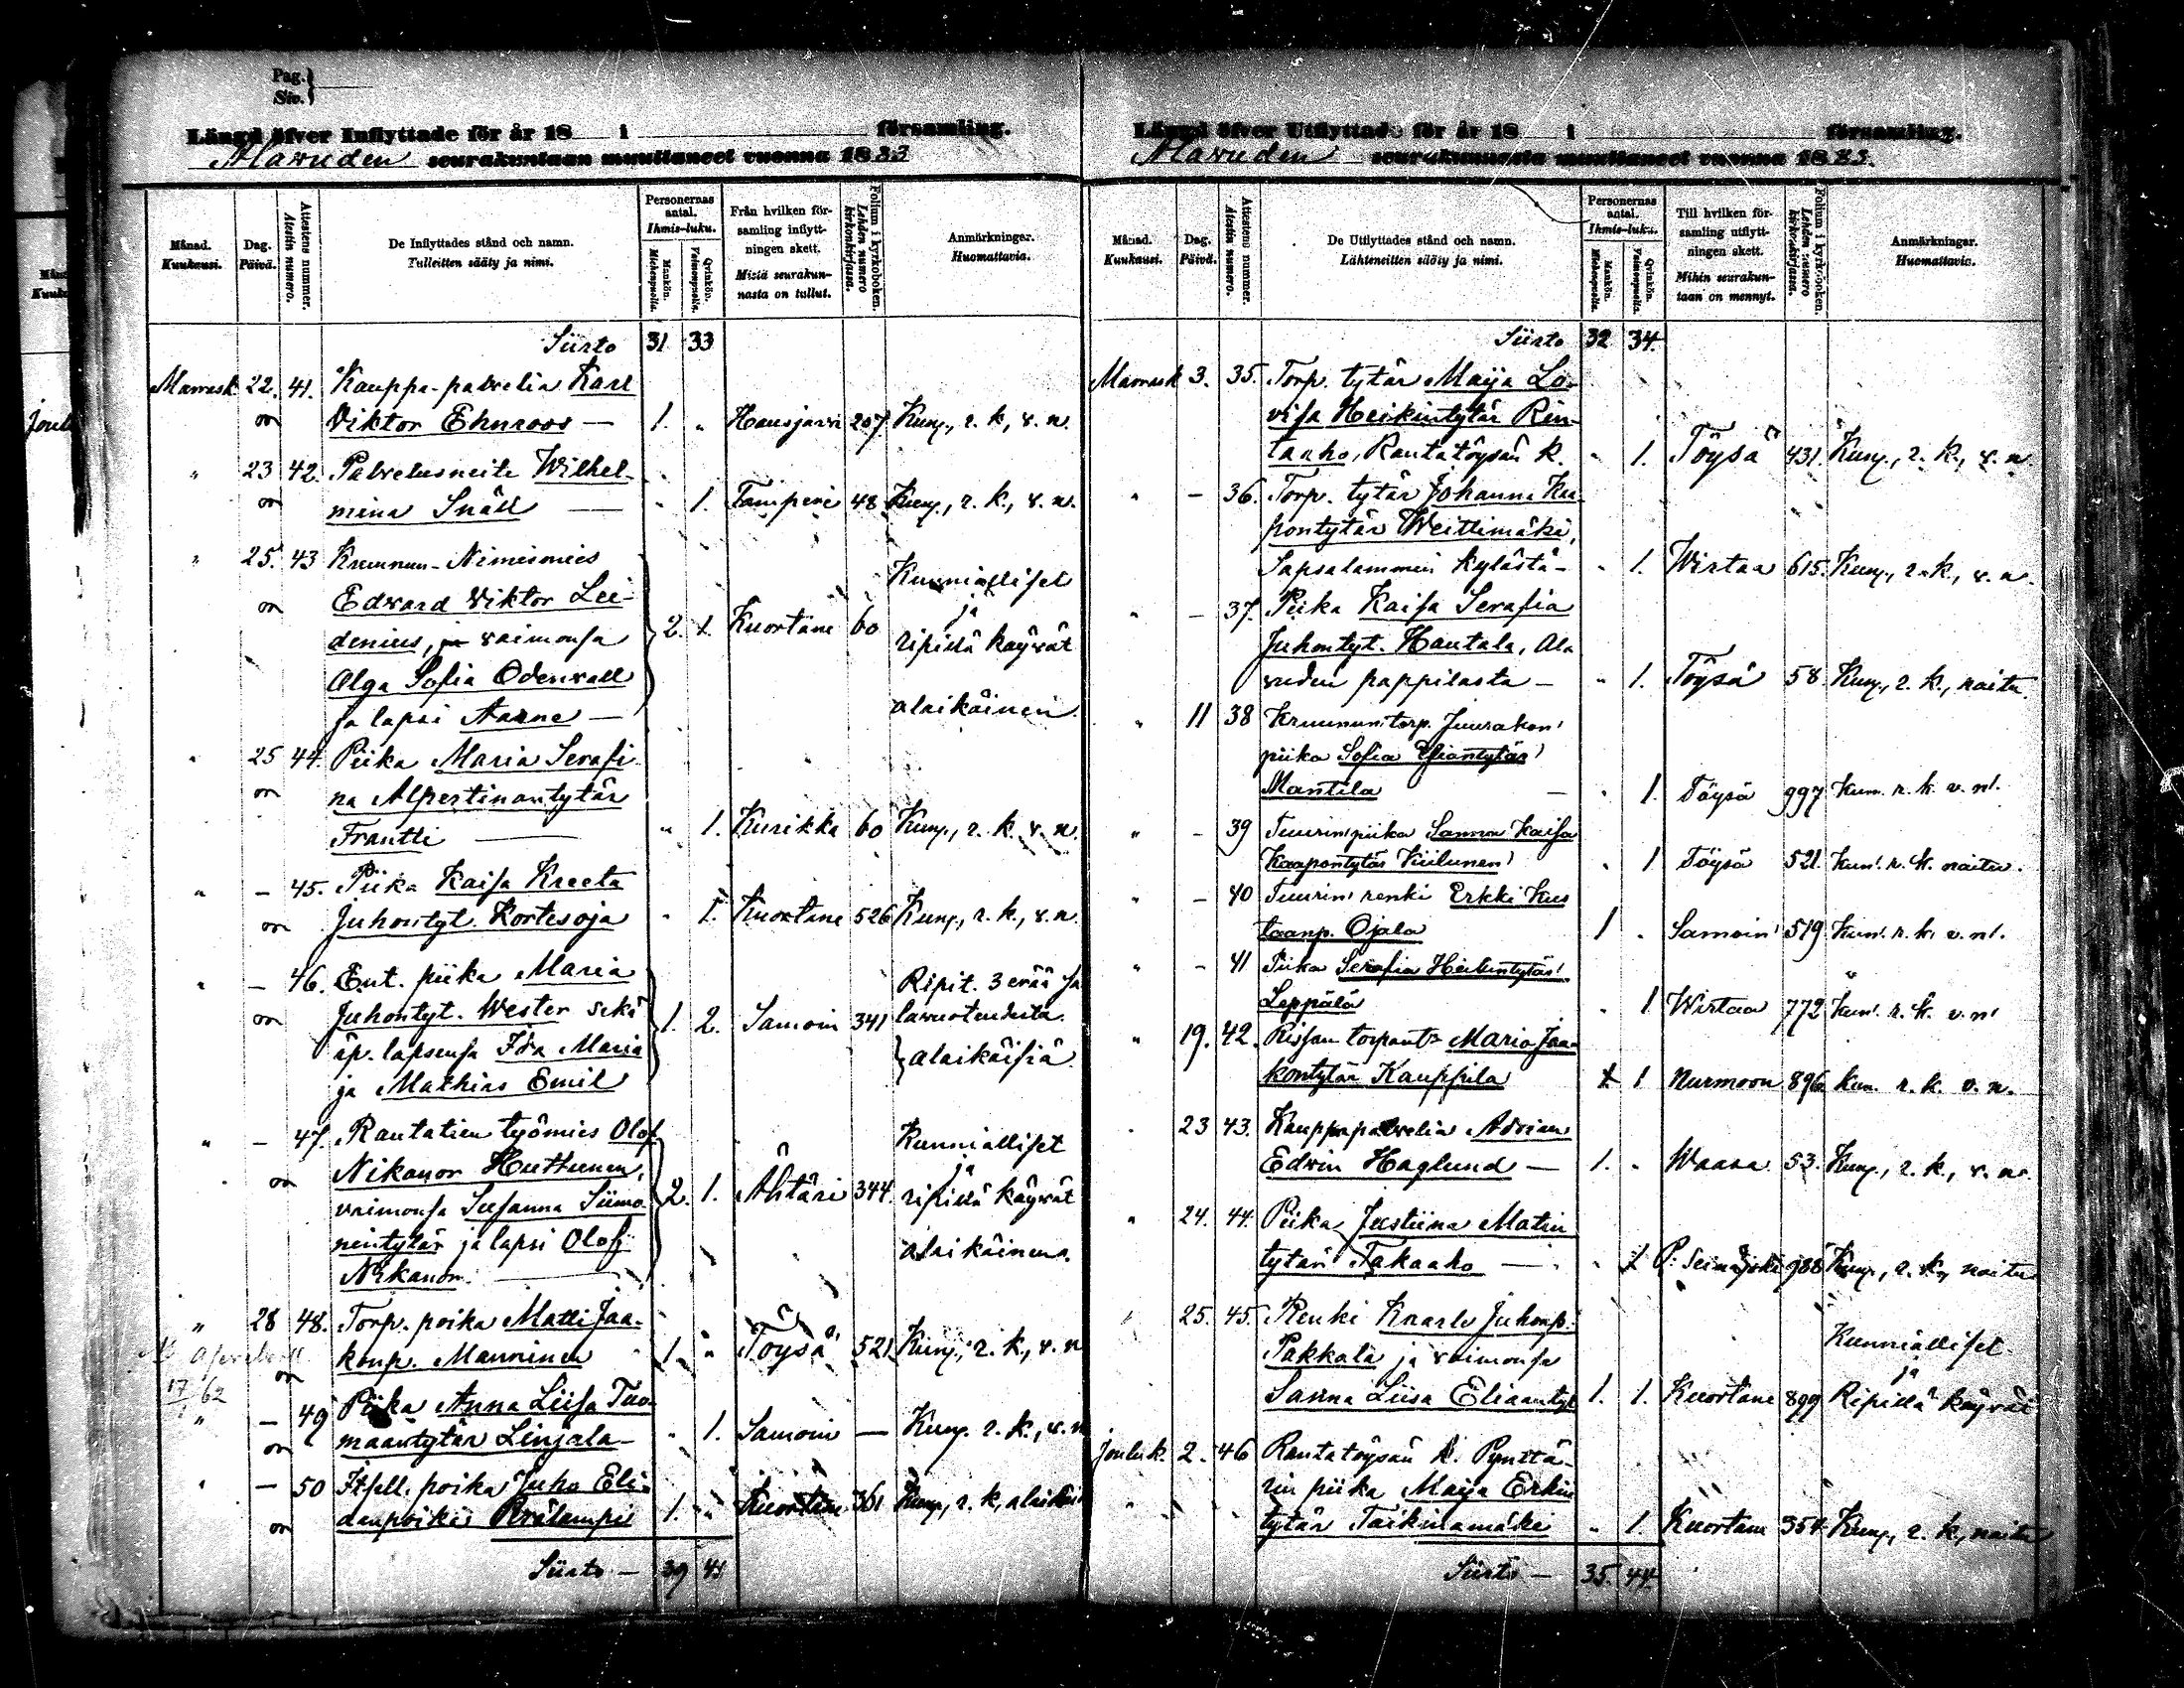 Pag.
Siv.
Längd öfver Inflyttade för år 18 i församling.
Alavuden seurakuntaan muuttaneet vuonna 1883
Månad. Kuukausi.
Dag. Päivä.
Attestens nummer. Atestin numero.
De Inflyttades stånd och namn.
Tulleitten sääty ja nimi.
Personernas antal. Ihmis-luku.
Mankön. Miehenpuolia.
Qvinkön. Vaimonpuolia.
Från hvilken församling inflyttningen skett.
Mistä seurakunnasta on tullut.
Folium i kyrkoboken. Lehden numero kirkonkirjassa.
Anmärkningar. Huomattavia.
Siirto 31 33
Marrask. 22. 41. Kauppa-palvelia Karl
on Viktor Ehnroos — 1. " Hausjärvi 207 Kunn., r. k., v. n.
" 23 42. Palvelusneiti Wilhel-
on mina Snäll — " 1. Tampere 48 Kunn., r. k., v. n.
" 25. 43 Kruunun-Nimismies
Kunnialliset
on Edvard Viktor Lei-
ja
denius, ja vaimonsa 2. 1. Kuortane 60 ripillä käyvät
Olga Sofia Odenvall
ja lapsi Aarne — alaikäinen.
" 25 44. Piika Maria Serafi-
on na Alpertinantytär
Frantti — " 1. Kurikka 60 Kunn., r. k. v. n.
" — 45. Piika Kaisa Kreeta
on Juhontyt. Kortesoja " 1. Kuortane 526 Kunn., r. k., v. n.
" — 46. Ent. piika Maria
Ripit. 3 erää ja
on Juhontyt. Wester sekä 1. 2. Samoin 341
äp. lapsensa Ida Maria alaikäisiä
ja Mathias Emil
" — 47. Rautatien työmies Olof
Kunnialliset
on Nikanor Huttunen,
ja
vaimonsa Susanna Siimo- 2. 1. Ähtäri 344. ripillä käyvät
nentytär ja lapsi Olof alaikäinen.
Nikanor. —
" 28 48. Torp. poika Matti Jaa-
on konp. Manninen 1. " Töysä 521 Kunn., r. k., v. n
17 62
" — 49 Piika Anna Liisa Tuo-
on maantytär Linjala — " 1. Samoin — Kunn. r. k., v. n
" — 50 Itsell. poika Juho Eli-
on 1. " Kuortane 361 Kunn., r. k,
Siirto — 39 41
Längd öfver Utflyttade för år 18 i församling.
Alavuden seurakunnasta muuttaneet vuonna 1883.
Månad. Kuukausi.
Dag. Päivä.
Attestens nummer. Atestin numero.
De Utflyttades stånd och namn.
Lähteneitten sääty ja nimi.
Personernas antal. Ihmis-luku.
Mankön. Miehenpuolia.
Qvinkön. Vaimonpuolia.
Till hvilken församling utflyttningen skett.
Mihin seurakuntaan on mennyt.
Folium i kyrkoboken. Lehden numero kirkonkirjassa.
Anmärkningar. Huomattavia.
Siirto 32 34.
Marrask 3. 35. Torp. tytär Maija Lo-
visa Heikintytär Rin-
taaho, Rantatöysän k. " 1. Töysä 431. Kunn., r. k., v. n.
" — 36. Torp. tytär Johanna Ku-
pontytär Weittimäki,
Sapsalammin kylästä — " 1. Wirtaa 615. Kunn., r. k., v. n.
" — 37. Piika Kaisa Serafia
Juhontyt. Hautala, Ala-
vuden pappilasta — " 1. Töysä 58. Kunn., r. k., naitu.
" 11 38 Kruununtorp. Juurakon
piika Sofia Eliantytär
Mantila — " 1. Töysä 997 Kunn. r. k. v. n.
" — 39 Tuurin piika Sanna Kaisa
Kaapontytär Kiilunen " 1 Töysä 521. Kun. r. k. naitu.
" — 40 Tuurin renki Erkki Kus
taanp. Ojala 1 " Samoin 519 Kun. r. k. v. n.
" — 41 Piika Serafia Heikintytär
Leppälä " 1 Wirtaa 772 Kun. r. k. v. n
" 19. 42. torpant. Maria Jaa-
kontytär Kauppila 1 Nurmoon 896 Kun. r. k. v. n.
" 23 43. Kauppapalvelia Adrian
Edvin Haglund — 1. " Waasa 53. Kunn., r. k., v. n.
" 24. 44. Piika Justiina Matin
tytär Takaaho — " 1 P. Seinäjoki 988 Kunn., r. k., naitu
" 25. 45. Renki Kaarlo Juhonp.
Kunnialliset
Pakkala ja vaimonsa
ja
Sanna Liisa Eliaantyt 1. 1. Kuortane 899 Ripillä käyvät
Jouluk. 2. 46 Rantatöysän k. Pynttä-
rin piika Maija Erkin
tytär Taikinamäki " 1. Kuortane 354. Kunn., r. k, naitu
Siirto — 35. 44.